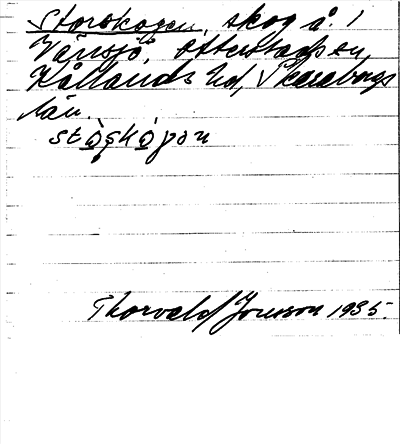 Storskogen, skog å. i
Vänsjö, Otterstads sn,
Kållands hd, Skaraborgs
län.
stòskógen
Thorvald Jonsson 1935.